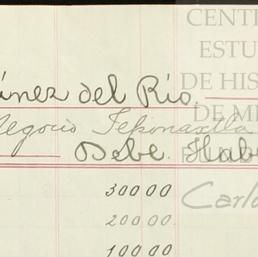 CENT
ESTU
DE HIS
DE M
ánez del Río.
Negocio Teponaxtla
Debe. Hab
300 00
Carlo
200.00
100 00